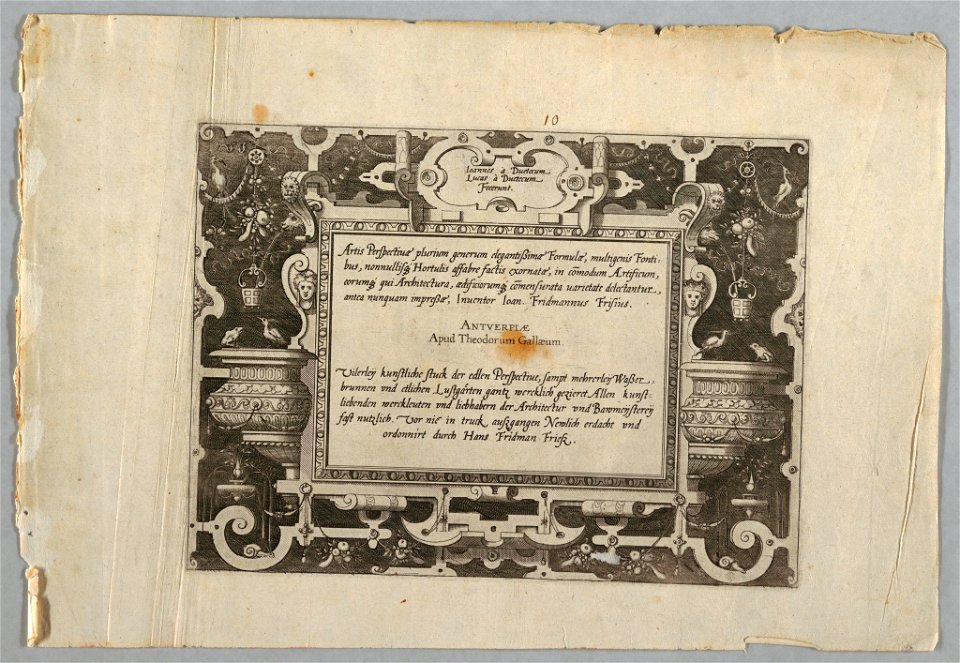 10
Ioannes à Duetecum
Lucas à Duetecum
Fecerunt.
Artis Perspectiuæ plurium generum elegantißimæ Formulæ, multigenis Fonti-
bus, nonnullisq́ Hortulis affabre factis exornatæ, in cōmodum Artificum,
eorumq́ qui Architectura, ædificiorumq́ cōmensurata uarietate delectantur,
antea nunquam impreßæ, Inuentor Ioan. Fridmannus Frisius.
ANTVERPIÆ
Apud Theodorum Gallæum.
Vilerleij kunstliche stuck der edlen Perspectiue, sampt mehrerleij Waßer-
brunnen vnd etlichen Lustgärten gantz wercklich gezieret Allen kunst-
liebenden werckleuten vnd liebhabern der Architectur vnd Bawmeijstereij
fast nutzlich. Vor nie in truck außgangen Newlich erdacht vnd
ordonnirt durch Hans Fridman Friesz.